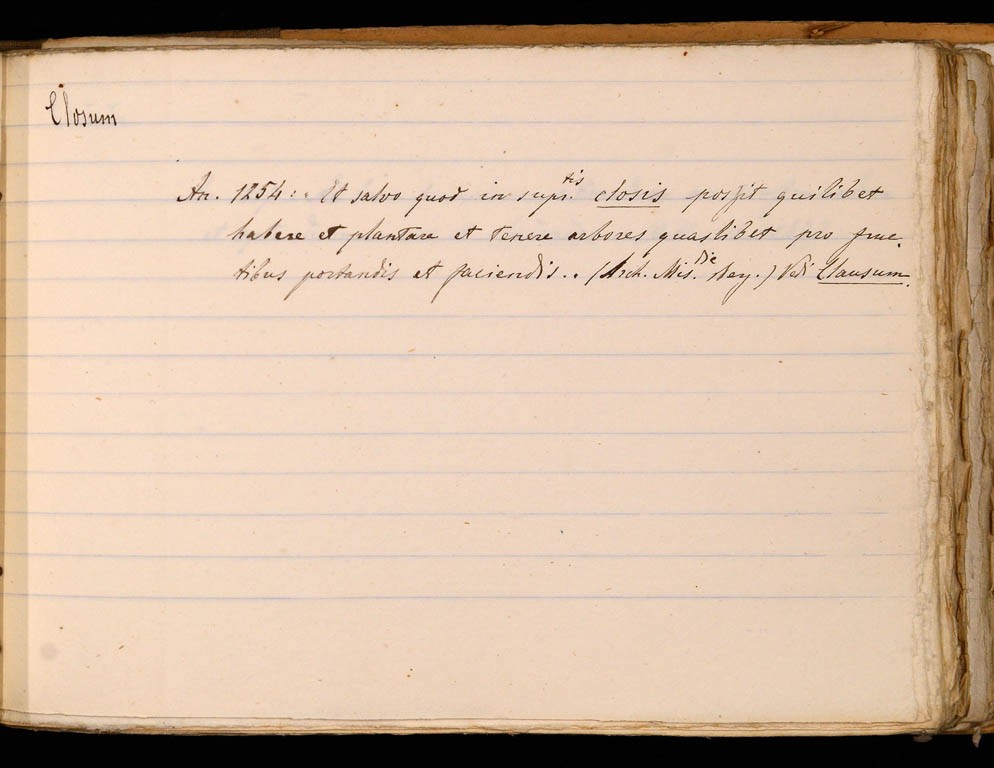 Closum
An. 1254: Et salvo quod in supr.tis closis possit quilibet
habere et plantare et tenere arbores quaslibet pro fruc-
tibus portandis et faciendis.. (Arch. Mis.die Reg.) Vedi Clausum.